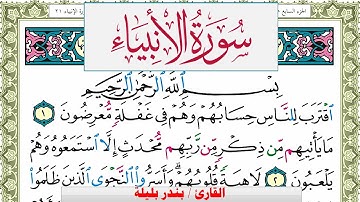 الجزء السابع
سورة الأنبياء ٢١
سُورَةُ الأَنبِيَاءِ
بِسْمِ اللَّهِ الرَّحْمَٰنِ الرَّحِيمِ
اقْتَرَبَ لِلنَّاسِ حِسَابُهُمْ وَهُمْ فِي غَفْلَةٍ مُّعْرِضُونَ ١
مَا يَأْتِيهِم مِّن ذِكْرٍ مِّن رَّبِّهِم مُّحْدَثٍ إِلَّا اسْتَمَعُوهُ وَهُمْ
يَلْعَبُونَ ٢ لَاهِيَةً قُلُوبُهُمْ وَأَسَرُّوا النَّجْوَى الَّذِينَ ظَلَمُوا
القارئ / بندر بليلة